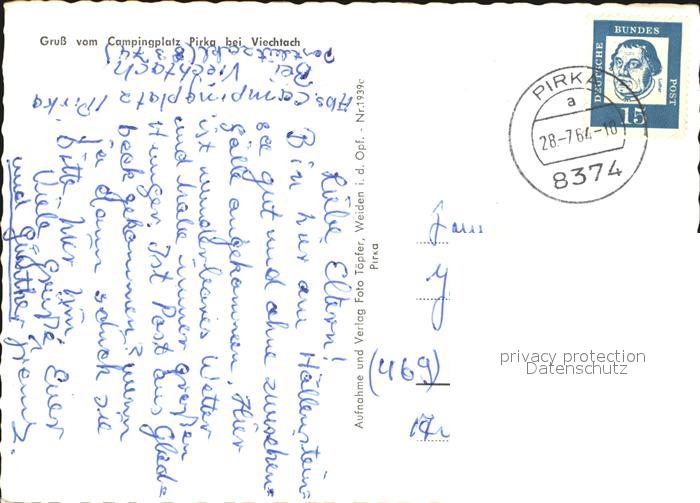 Gruß vom Campingplatz Pirka bei Viechtach
Postleitzahl (8374)
Bei Viechtach
Abs. Campingplatz Pirka
Liebe Eltern!
Bin hier am Höllenstein-
see gut und ohne zwischen=
fälle angekommen. Hier
ist wunderbares Wetter
und habe immer großen
Hunger. Ist Post aus Glad=
beck gekommen? wenn
ja dann schick sie
bitte hier hin
Viele Grüße Euer
und günther Franz.
Aufnahme und Verlag Foto Töpfer, Weiden i. d. Opf. - Nr. 1939c
Pirka
DEUTSCHE BUNDES POST
Luther
15
PIRKA
a
28.-7.64-10
8374
(469)
privacy protection
Datenschutz